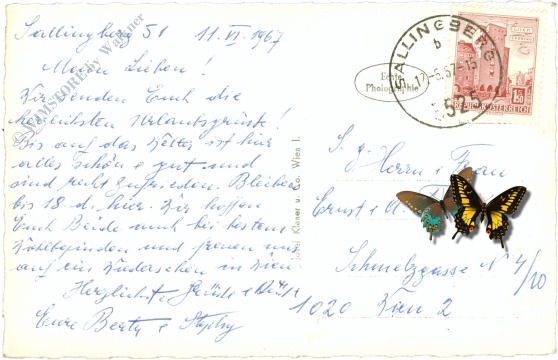 Sallingberg 51 11.VI.1967
Meine Lieben!
Wir senden Euch die
herzlichsten Urlaubsgrüße!
Bis auf das Wetter ist hier
alles schön u gut und
sind recht zufrieden. Bleiben
bis 18. d. hier. Wir hoffen
Euch Beide noch bei bestem
Wohlbefinden und freuen uns
auf ein Wiedersehen in Wien.
Herzlichste Grüße u
Eure Berta u
Echte
Photographie
SALLINGBERG
b
3525
REPUBLIK ÖSTERREICH
1.50
Josef Kleiner u. Co. Wien I.
Herrn u Frau
Ernst u
Schmelzgasse N 4/20
1020 Wien 2